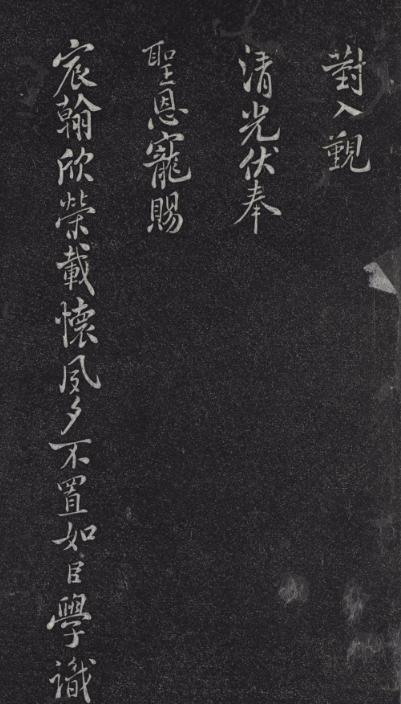 對入覲
清光伏奉
聖恩寵賜
宸翰欣榮載懷夙夕不置如臣學識